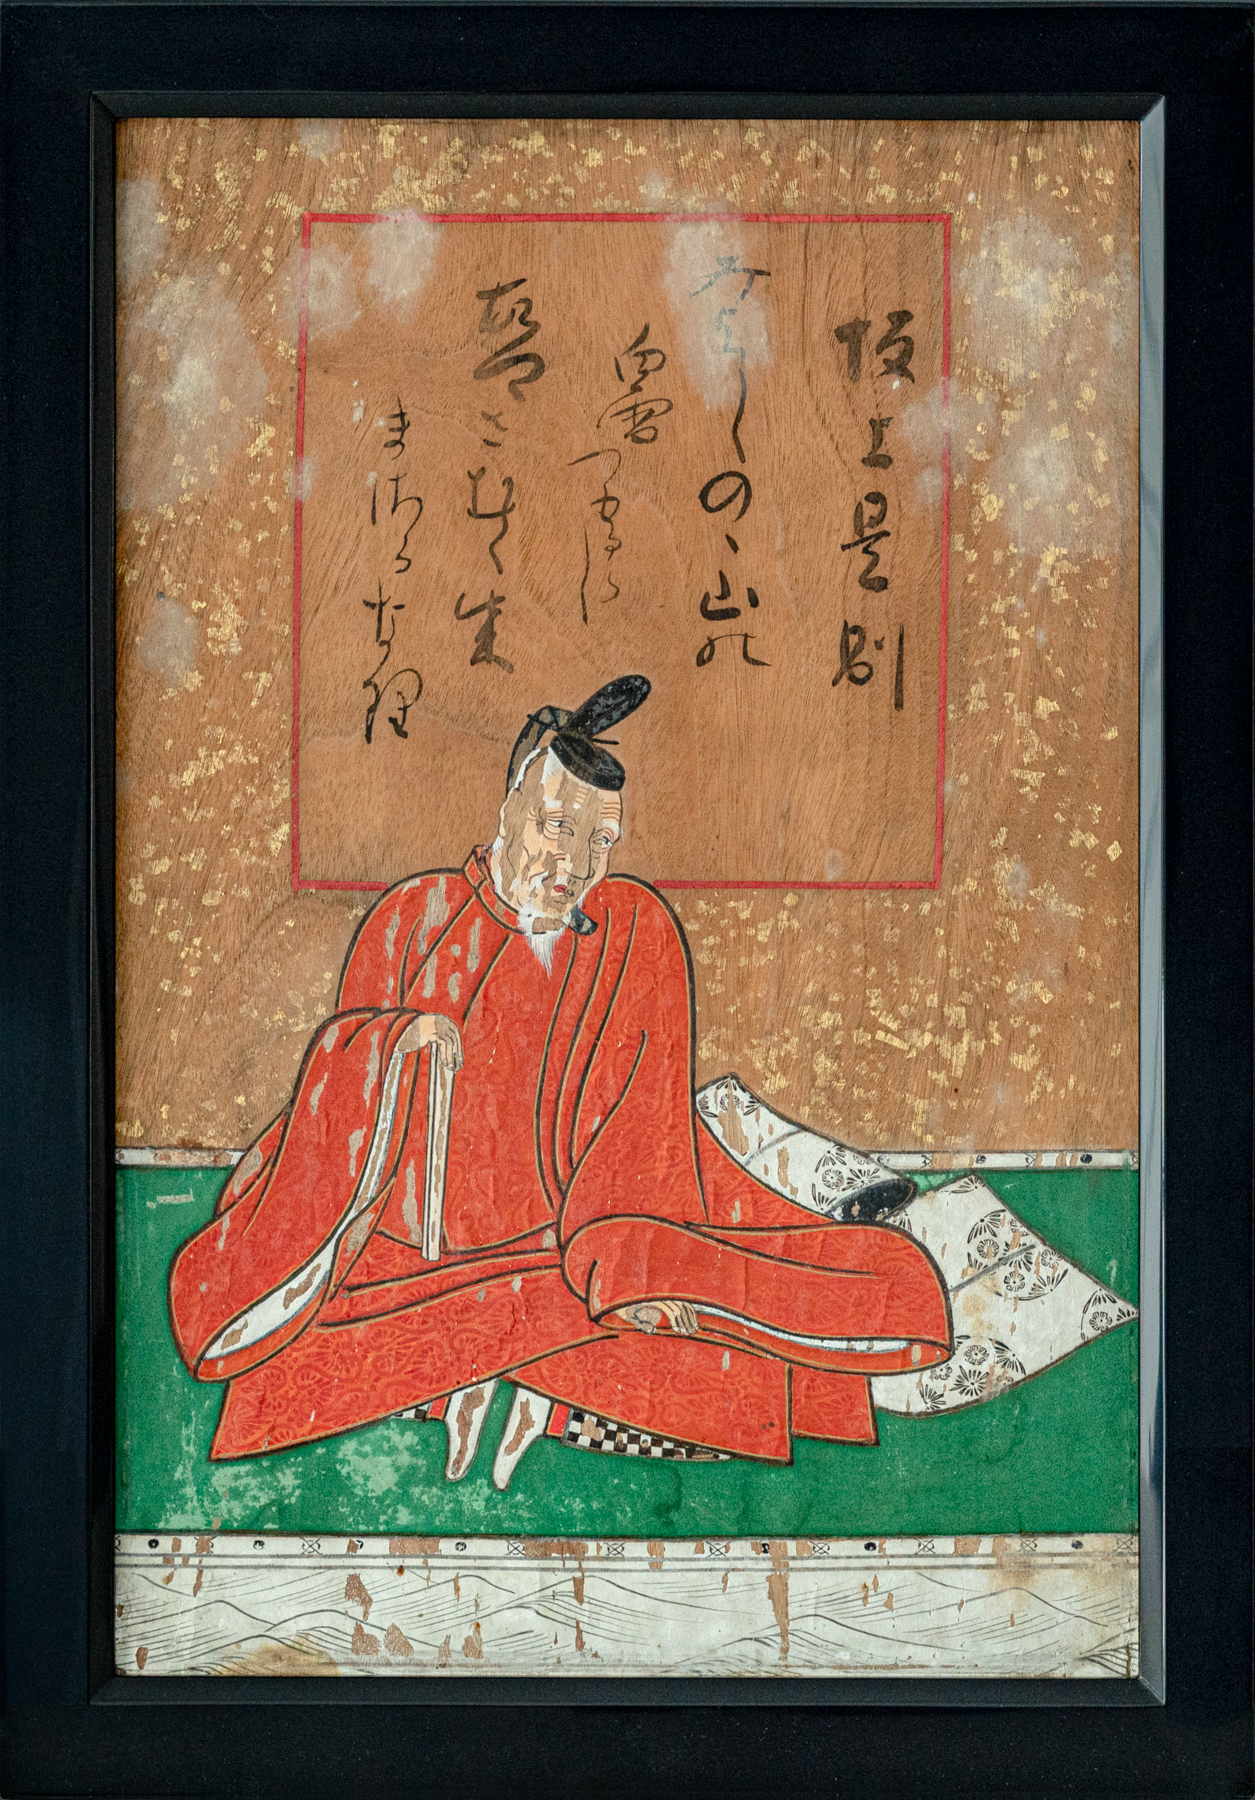 坂上是則
みよしのゝ山の
白雪つもるらし
故郷さむく成
まさるなり